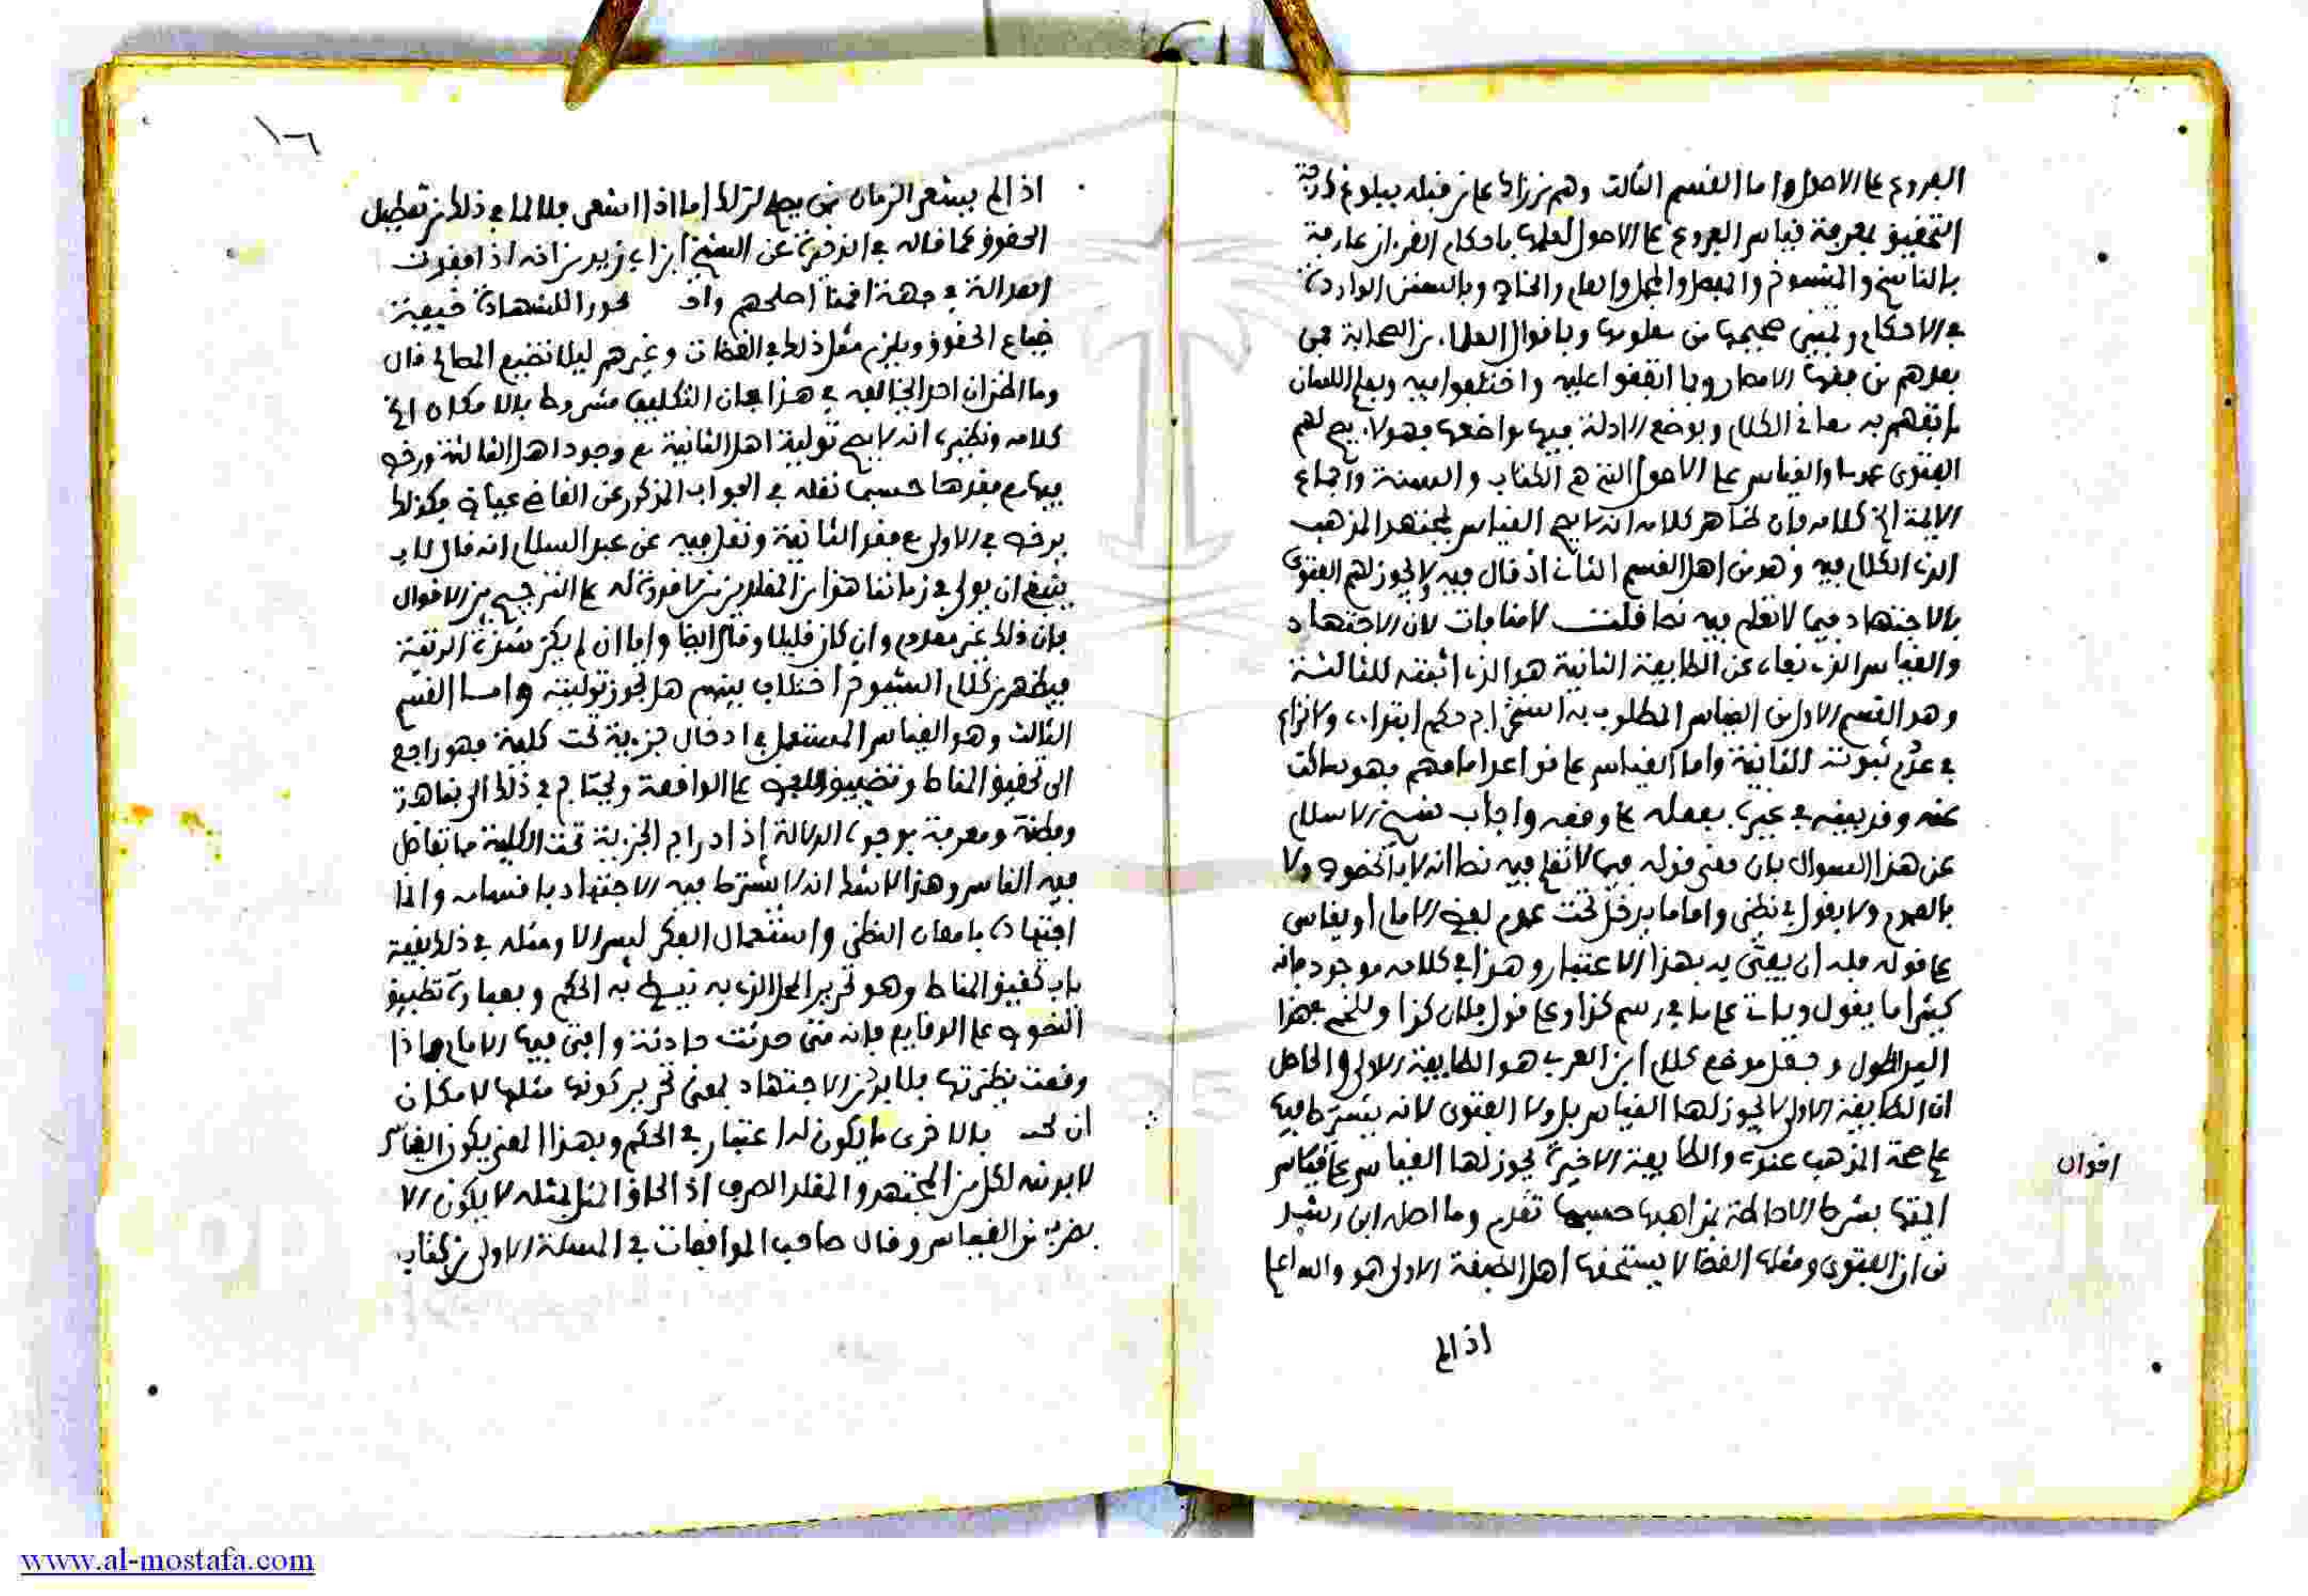 الفروع على الاصول واما القسم الثالث وهم من زاد على من قبله ببلوغ درجة
التحقيق بمعرفة قياس الفروع على الاصول لعلمها باحكام القرءان عارفة
بالناسخ والمنسوخ والمفصل والمجمل والعام والخاص وبالسنن الواردة
في الاحكام وتميز صحيحها من معلومها وباقوال العلماء من الصحابة فمن
بعدهم من فقهاء الامصار وبما اتفقوا عليه واختلفوا فيه وبعلم اللسان
ما تفهم به معاني الكلام وبوضع الادلة فيها مواضعها فهولاء يصح لهم
الفتوى عموما والقياس على الاصول التي هي الكتاب والسنة واجماع
الايمة الخ كلامه فان ظاهر كلامه انه لا يصح القياس لمجتهد المذهب
الذي الكلام فيه وهو من اهل القسم الثاني اذ قال فيه ولا يجوز لهم الفتوى
بالاجتهاد فيما لا تعلم فيه نصا قلت لا منافات لان الاجتهاد
والقياس الذي نفاه عن الطايفة الثانية هو الذي اثبته للثالثة
وهو القسم الاول من القياس المطلوب به استخراج حكم ابتداء ولا نزاع
في عدم ثبوته للثانية واما القياس على قواعد امامهم فهو ساكت
عنه وقد بينه في غيره بفعله على وفقه واجاب شيخ الاسلام
عن هذا السوال بان معنى قوله فيما لا تعلم فيه نصا انه لا بالخصوص ولا
بالعموم ولا يقول في نظير واما ما يدخل تحت عموم لفظ الامام او يقاس
على قوله فله ان يفتي به بهذا الاعتبار وهذا في كلامه موجود فانه
كثيرا ما يقول وياتي على ما في رسم كذا وعلى قول فلان كذا وللخمي بهذا
اليد الطول وجعل موضع كلام ابن العربي هو الطايفة الاولى والحاصل
ان الطايفة الاولى لا يجوز لها القياس بل ولا الفتوى لانه يشترط فيها
علم صحة المذهب عنده والطايفة الاخيرة يجوز لها القياس على قياس
اقوال
الفقها بشرط الاحاطة بمذاهبها حسبما تقدم وما اصله ابن رشد
من ان الفتوى ومثلها القضا لا يستحقها اهل الصفة الاولى هو والله اعلم
اذا لم
١٠٦
اذا لم يشغر الزمان عمن يصلح لذلك اما اذا شغر فلا لما في ذلك من تعطيل
الحقوق كما قاله في الذخيرة عن الشيخ ابن ابي زيد من انه اذا فقدت
العدالة في جهة اقمنا اصلحهم للشهادة خيفة
ضياع الحقوق ويلزم مثل ذلك في القضات وغيرهم ليلا تضيع المصالح قال
وما اظن ان احدا يخالف في هذا فان التكليف مشروط بالامكان الخ
كلامه ونظيره انه لا يصح تولية اهل الثانية مع وجود اهل الثالثة ورخص
فيها مع فقدها حسبما نقله في الجواب المذكور عن القاضي عياض فكذلك
يرخص في الاولى مع فقد الثانية ونقل فيه عن عبد السلام انه قال لا
ينبغي ان يولى في زماننا هذا من المقلدين من لا قدرة له على الترجيح بين الاقوال
فان ذلك غير معدوم وان كان قليلا وقال ايضا واما ان لم يكن بهذه المرتبة
فيظهر من كلام الشيوخ اختلاف بينهم هل يجوز توليته واما القسم
الثالث وهو القياس المستعمل في ادخال جزءية تحت كلية فهو راجع
الى تحقيق المناط وتطبيق النصوص على الواقعة ويحتاج في ذلك الى نباهة
وفطنة ومعرفة بوجوه الدلالة اذ ادراج الجزية تحت الكلية مما تفاضل
فيه الناس وهذا لا شك انه لا يشترط فيه الاجتهاد باقسامه وانما
اجتهاده بامعان النظر واستعمال الفكر ليس الا ومثله في ذلك بقية
باب تحقيق المناط وهو تحرير المحل الذي به نيط به الحكم وبعبارة تطبيق
النصوص على الوقايع فانه متى حدثت حادثة وافتى فيها الامام فاذا
وقعت نظيرتها فلا بد من الاجتهاد بمعنى تحرير كونها مثلها لامكان
ان بالاخرى ما يكون له اعتبار في الحكم وبهذا المعنى يكون القياس
لا بد منه لكل من المجتهد والمقلد الصرف اذ الحاق المثل بمثله لا يكون الا
بضرب من القياس وقال صاحب الموافقات في المسئلة الاولى من كتاب
www.al-mostafa.com